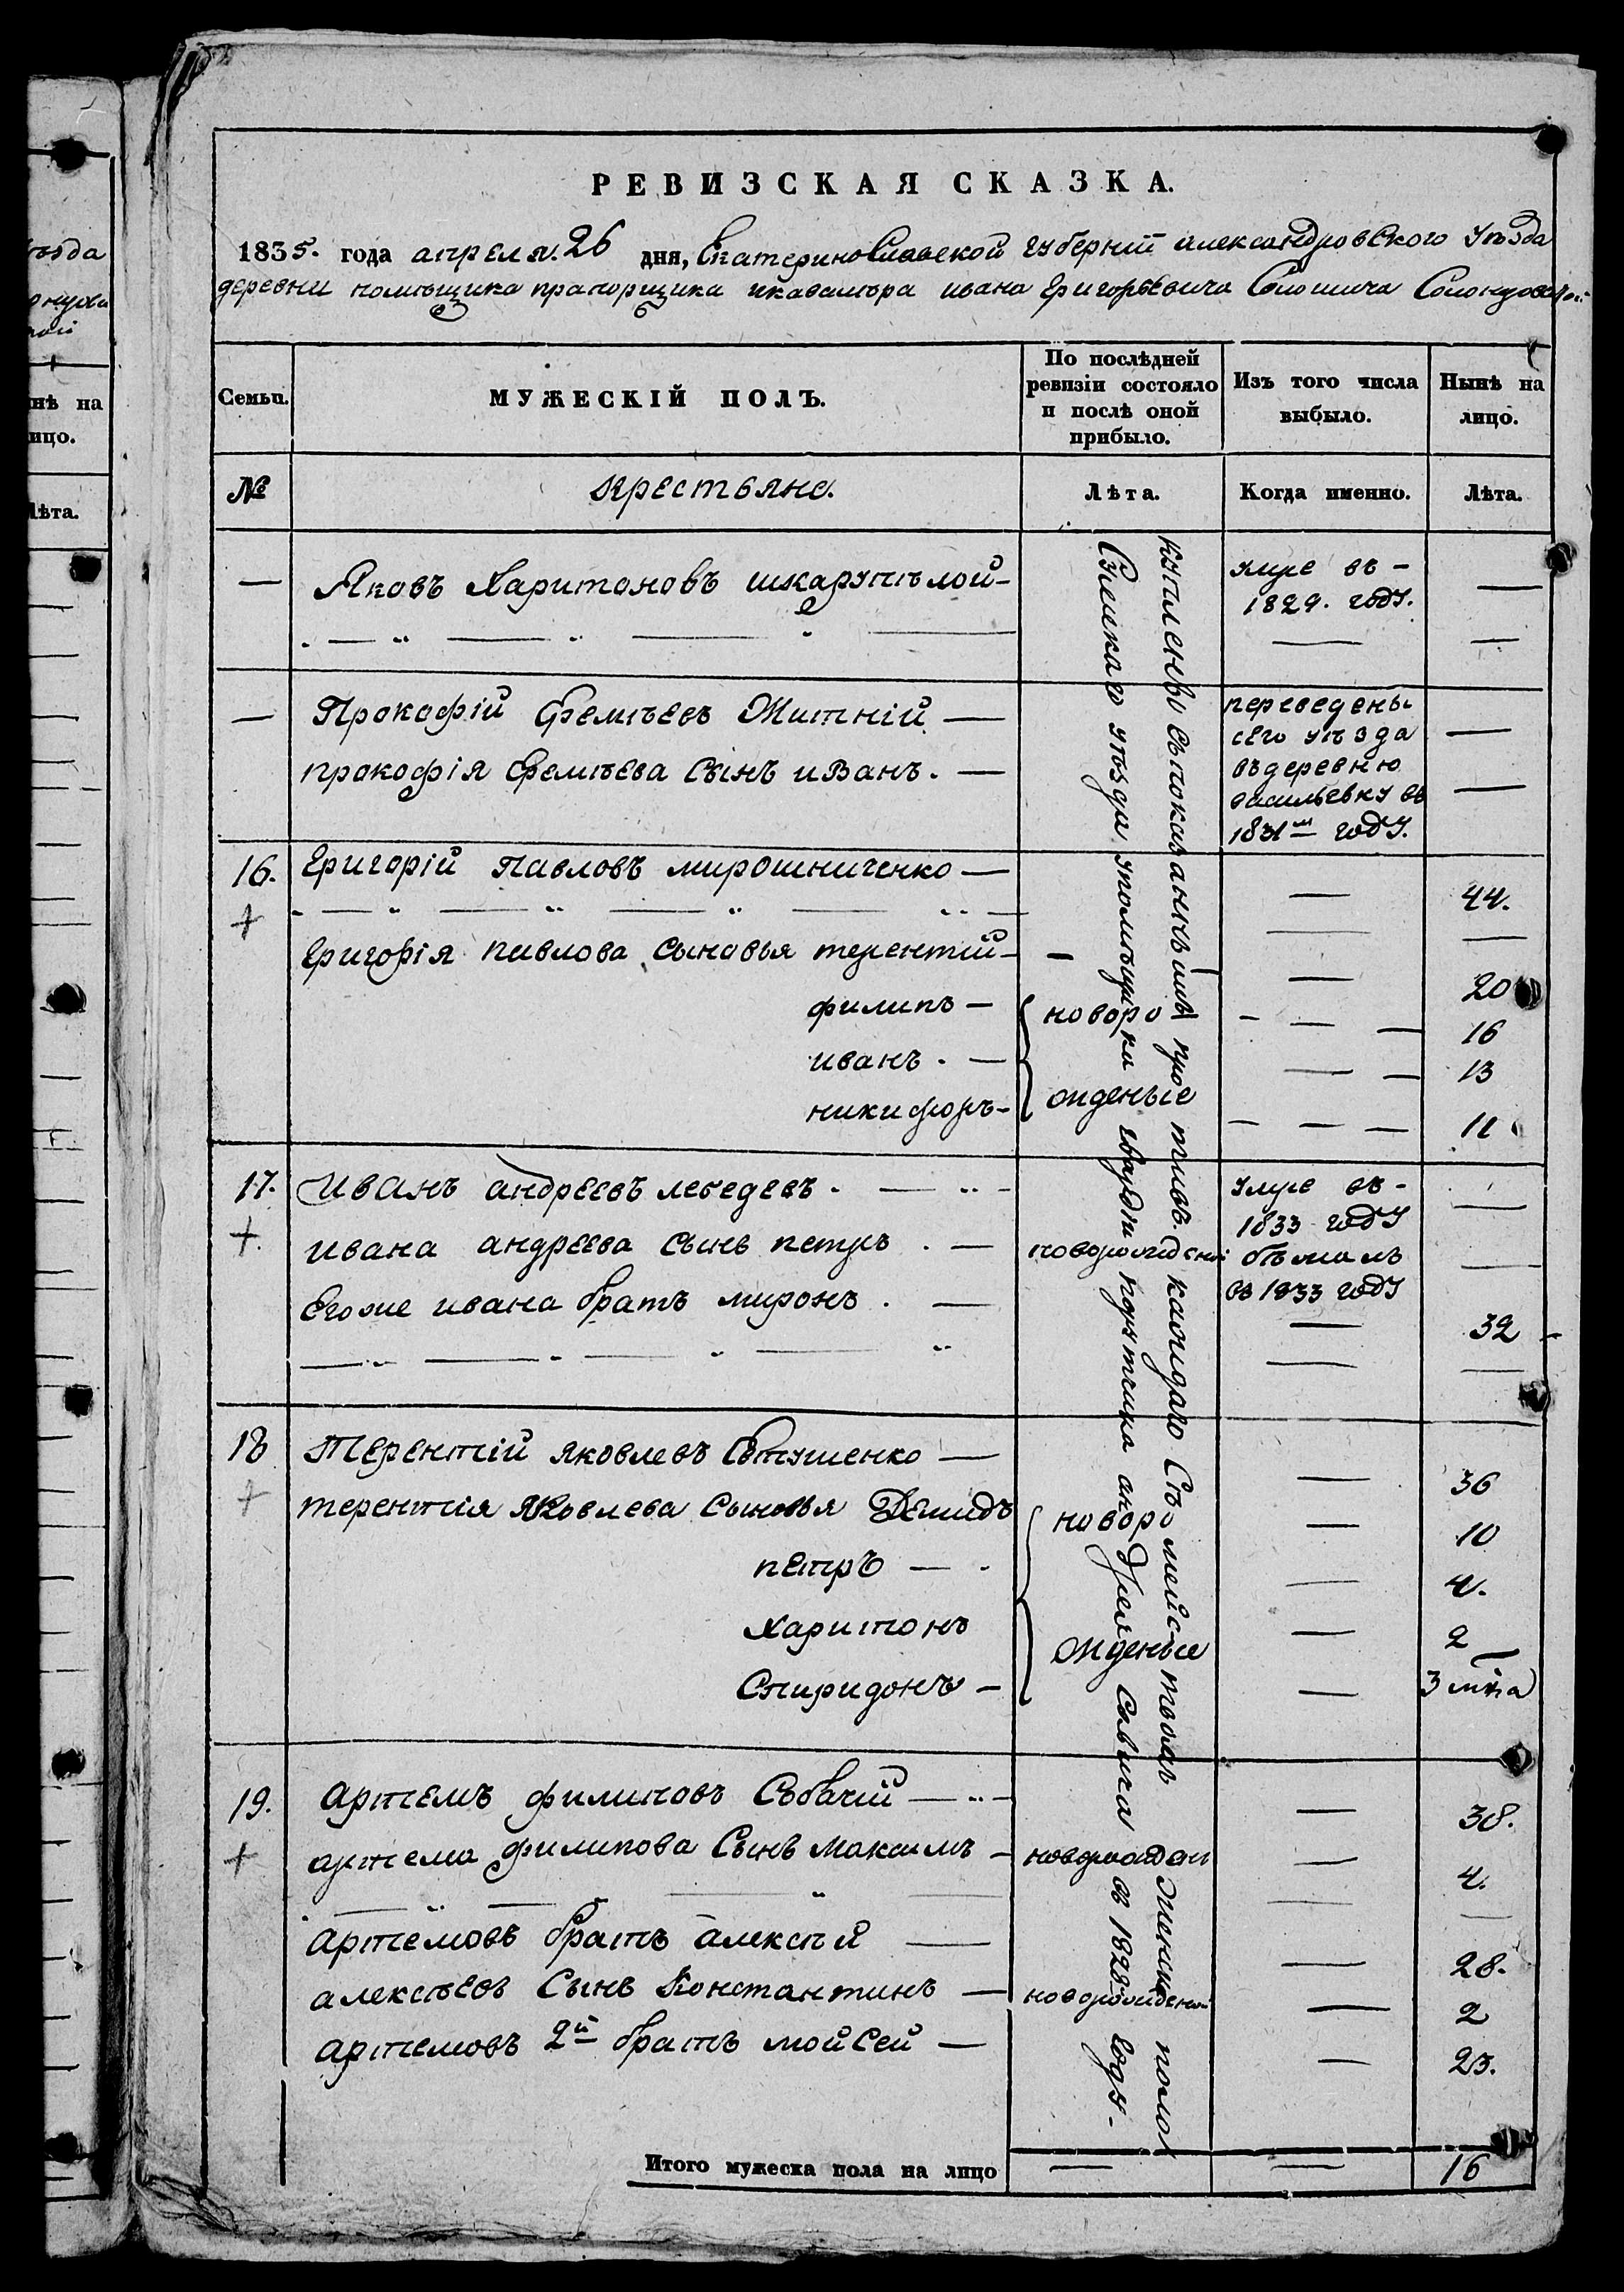 РЕВИЗСКАЯ СКАЗКА.
1835. года апреля. 26 дня, Екатеринославской губернии александровского уезда
деревни помещика прапорщика икавалера ивана Григорьевича
Семьи.
МУЖЕСКІЙ ПОЛЪ.
По послѣдней ревизіи состояло и послѣ оной прибыло.
Изъ того числа выбыло.
Нынѣ на лицо.
№
крестьяне.
Лѣта.
Когда именно.
Лѣта.
— Яковъ Харитоновъ — умре въ — 1829. году. —
— Прокофій Еремѣевъ Житній —
прокофія Еремѣева Сынъ иванъ. —
переведены
сего уѣзда
въ деревню
васильевку въ
1831м году.
16. Григорій Павловъ мирошниченко — — 44.
+
Григорія павлова сыновья терентій — — 20
филипъ — новоро — 16
иванъ. — — 13
никифоръ — жденые — 11
17. Иванъ андреевъ лебедевъ. — умре въ — 1833 году —
+
ивана андреева Сынъ петръ. — новорожденой бѣжалъ въ 1833 году —
Егоже ивана братъ миронъ. — — 32
18 Терентій яковлевъ Евтушенко — — 36
+
терентія яковлева Сыновья Демидъ новоро — 10
петръ — — 4.
Харитонъ жденые — 2
Спиридонъ — — 3 мца
19. артемъ филиповъ Собачій — — 38.
+
артема филипова Сынъ Максимъ — новорожден — 4.
артемовъ братъ алексѣй — — 28.
алексѣевъ Сынъ Константинъ — новорожденой — 2
артемовъ 2й братъ мойсей — — 23.
купленью съ показаниемъ противъ каждаго Съ мейством женска полом
Сумскаго уѣзда упомѣщика гвардии порутчика андрея Савича в 1828м Году —
Итого мужеска пола на лицо — — 16
ѣзда
нѣ на
ицо.
Лѣта.